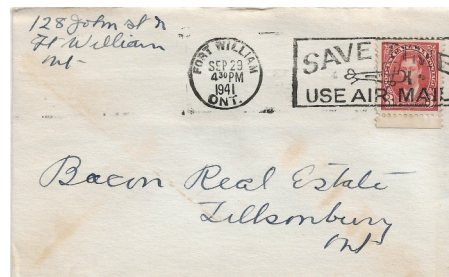 128 John St N
Ft William
Ont
FORT WILLIAM
SEP 29
4 30 PM
1941
ONT.
SAVE
USE AIR MAIL
Bacon Real Estate
Tillsonburg
Ont